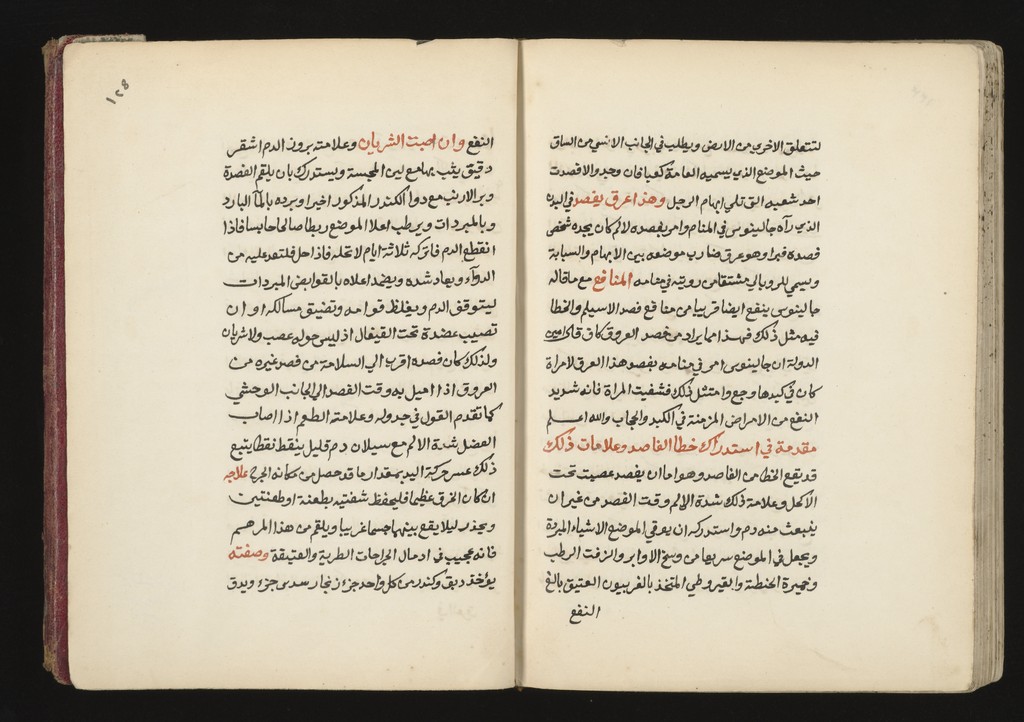 لتتعلق الاخرى من الارض ويطلب في الجانب الانسي من الساق
حيث الموضع الذي يسميه العامة كعبا فان وجد والا قصدت
احد شعبه التي تلي ابهام الرجل وهذا عرق يفصد في اليد
الذي رآه جالينوس في المنام وامر بفصده لالم كان يجده شخص
فصده فبرا وهو عرق ضارب موضعه بين الابهام والسبابة
وسمي للرويا لي مشتقا من رويته في منامه المنافع مع ما قاله
جالينوس ينفع ايضا قريبا من منافع فصد الاسيلم والخطا
فيه مثل ذلك فهذا ما يراد من فصد العروق كاق قال امين
الدولة ان جالينوس امر في منامه بفصد هذا العرق لامراة
كان في كبدها وجع وامتثل ذلك فشفيت المراة فانه شديد
النفع من الامراض المزمنة في الكبد والحجاب والله اعلم
مقدمة في استدراك خطا الفاصد وعلامات ذلك
قد يقع الخطا من الفاصد وهو اما ان يفصد عصبت تحت
الاكحل وعلامة ذلك شدة الالم وقت الفصد من غير ان
ينبعث منه دم واستدركه ان يوقي الموضع الاشياء المبردة
ويجعل في الموضع سريعا من وسخ الاواير والزفت الرطب
وخميرة الحنطة والقيروطي المتخذ بالفربيون العتيق بالغ
النفع
١٢٨
النفع وان اصبت الشريان وعلامته بروز الدم اشقر
دقيق يثب بها مع لين المجسة ويستدرك بان يلقم الفصدة
وبر الارنب مع دوا الكندر المذكور اخيرا ويرده بالمآ البارد
وبالمبردات ويرطب اعلا الموضع ربطا صالحا حابسا فاذا
انقطع الدم فاتركه ثلاثة ايام لا تحله فاذا حل فلتعد عليه من
الدوآء ويعاد شده ويضمد اعلاه بالقوابض المبردات
ليتوقف الدم ويغلظ قوامه وتضيق مسالكه او ان
تصيب عضدة تحت القيفال اذ ليس حوله عصب ولا شريان
ولذلك كان فصده اقرب الي السلامة من فصد غيره من
العروق اذا اميل به وقت الفصد الي الجانب الوحشي
كما تقدم القول في جدوله وعلامته الطعم اذا اصاب
العضل شدة الالم مع سيلان دم قليل ينقط نقطا يتبع
ذلك عسر حركة اليد بمقدار ما قد حصل من مكانه الجرح علاجه
ان كان الخرق عظيما فليحفظ شفتيه بطعنة او طعنتين
ويجذب ليلا يقع بينهما جسما غريبا ويلقم من هذا المرهم
فانه عجيب في ادمال الجراحات الطرية والعتيقة وصفته
يؤخذ دبق وكندر من كل واحد جزء زنجار سدس جزء ويدق